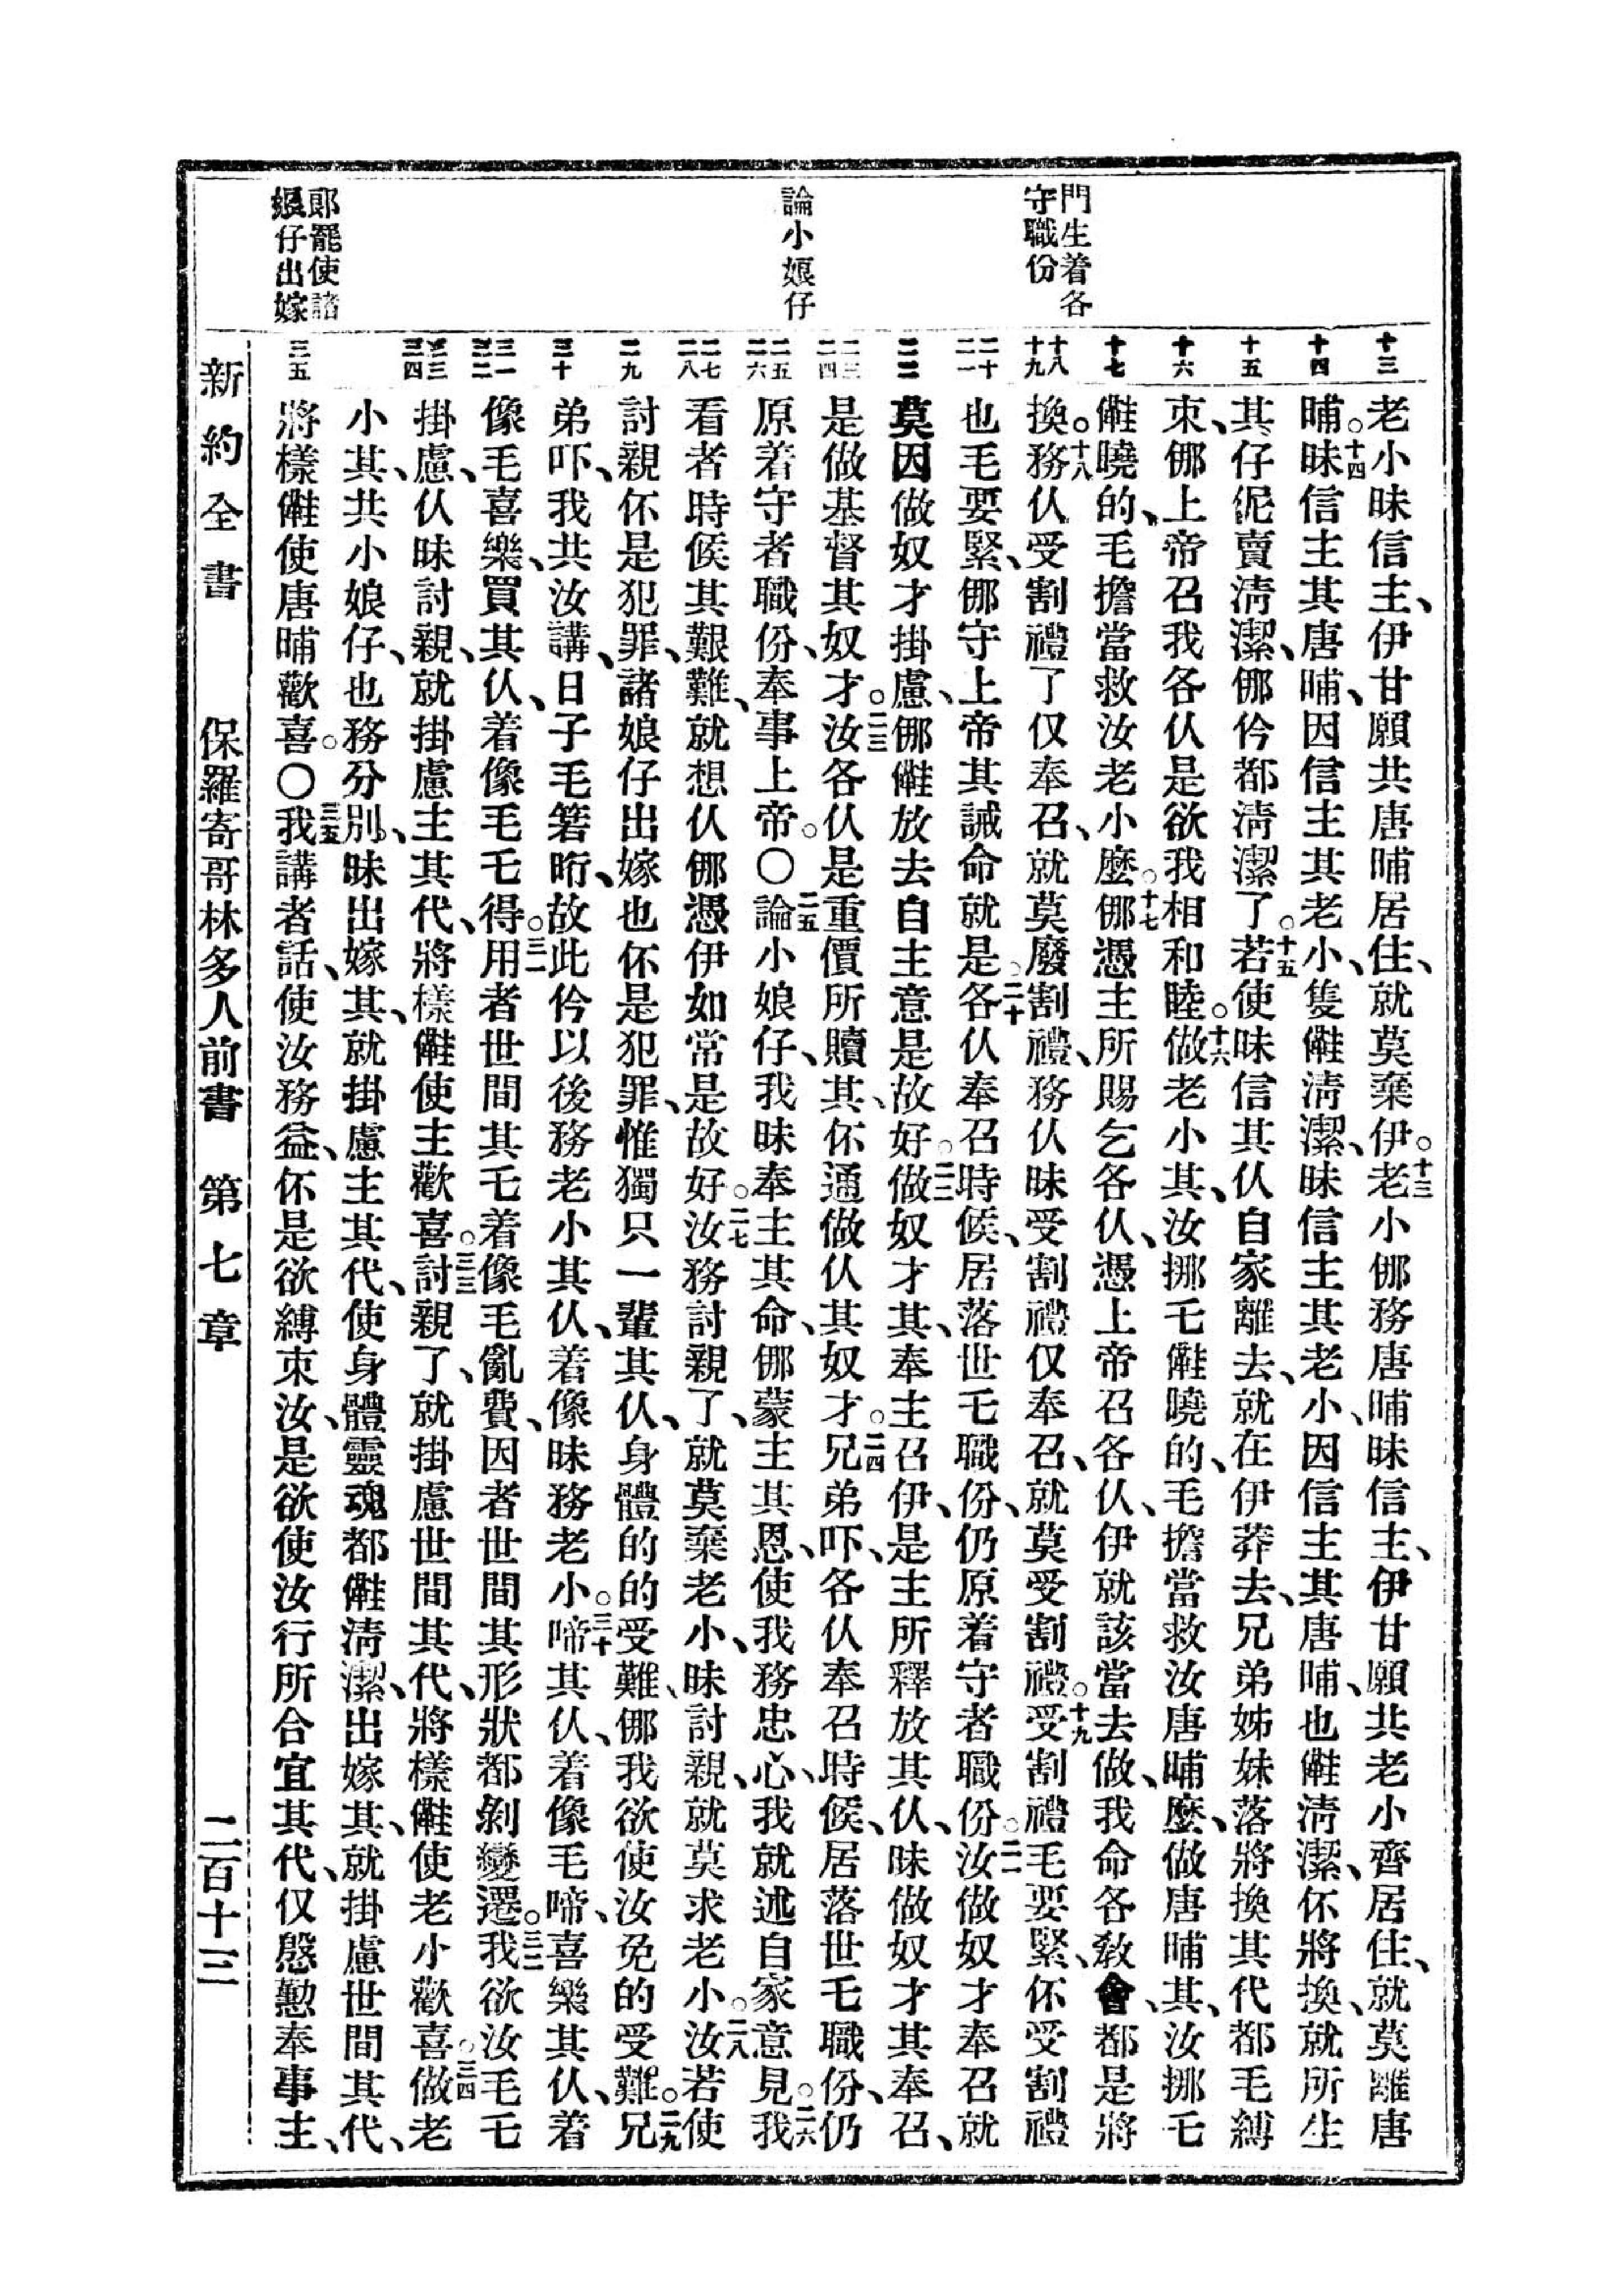 門生着各
守職份
論小娘仔
郍罷使諸
娘仔出嫁
十三
十四
十五
十六
十七
十八
十九
二十
二一
二二
二三
二四
二五
二六
二七
二八
二九
三十
三一
三二
三三
三四
三五
老小昧信主、伊甘願共唐晡居住、就莫棄伊。十三老小㑚務唐晡昧信主、伊甘願共老小齊居住、就莫離唐
晡。十四昧信主其唐晡、因信主其老小、隻㒕淸潔、昧信主其老小、因信主其唐晡、也㒕淸潔、伓將換、就所生
其仔伲賣淸潔、㑚伶都淸潔了。十五若使昧信其仈自家離去、就在伊莽去、兄弟姊妹落將換其代都毛縛
束、㑚上帝召我各仈是欲我相和睦。十六做老小其、汝挪乇㒕曉的、毛擔當救汝唐晡麽、做唐晡其、汝挪乇
㒕曉的、毛擔當救汝老小麽。十七㑚憑主所賜乞各仈、憑上帝召各仈、伊就該當去做、我命各敎會、都是將
換。十八務仈受割禮了仅奉召、就莫廢割禮、務仈昧受割禮仅奉召、就莫受割禮。十九受割禮毛要緊、伓受割禮
也毛要緊、㑚守上帝其誡命就是。二十各仈奉召時候、居落世乇職份、仍原着守者職份。二一汝做奴才奉召就
莫因做奴才掛慮、㑚㒕放去自主意是故好。二二做奴才其、奉主召伊、是主所釋放其仈、昧做奴才其奉召、
是做基督其奴才。二三汝各仈是重價所贖其、伓通做仈其奴才。二四兄弟吓、各仈奉召時候、居落世乇職份、仍
原着守者職份、奉事上帝。〇二五論小娘仔、我昧奉主其命、㑚蒙主其恩、使我務忠心、我就述自家意見。二六我
看者時候其艱難、就想仈㑚憑伊如常是故好。二七汝務討親了、就莫棄老小、昧討親、就莫求老小。二八汝若使
討親伓是犯罪、諸娘仔出嫁也伓是犯罪、惟獨只一輩其仈、身體的的受難、㑚我欲使汝免的受難。二九兄
弟吓、我共汝講、日子毛箬䀪、故此伶以後務老小其仈、着像昧務老小。三十啼其仈、着像毛啼、喜樂其仈、着
像毛喜樂、買其仈、着像毛乇得。三一用者世間其乇着像毛亂費、因者世間其形狀都剝變遷。三二我欲汝毛乇
掛慮、仈昧討親、就掛慮主其代、將樣㒕使主歡喜。三三討親了、就掛慮世間其代、將樣㒕使老小歡喜。三四做老
小其、共小娘仔、也務分別、昧出嫁其、就掛慮主其代、使身體靈魂都㒕淸潔、出嫁其、就掛慮世間其代、
將樣㒕使唐晡歡喜。〇三五我講者話、使汝務益、伓是欲縛束汝、是欲使汝行所合宜其代、仅慇懃奉事主、
新約全書　保羅寄哥林多人前書　第七章　二百十三